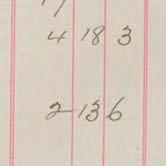 4 18 3
2 13 6